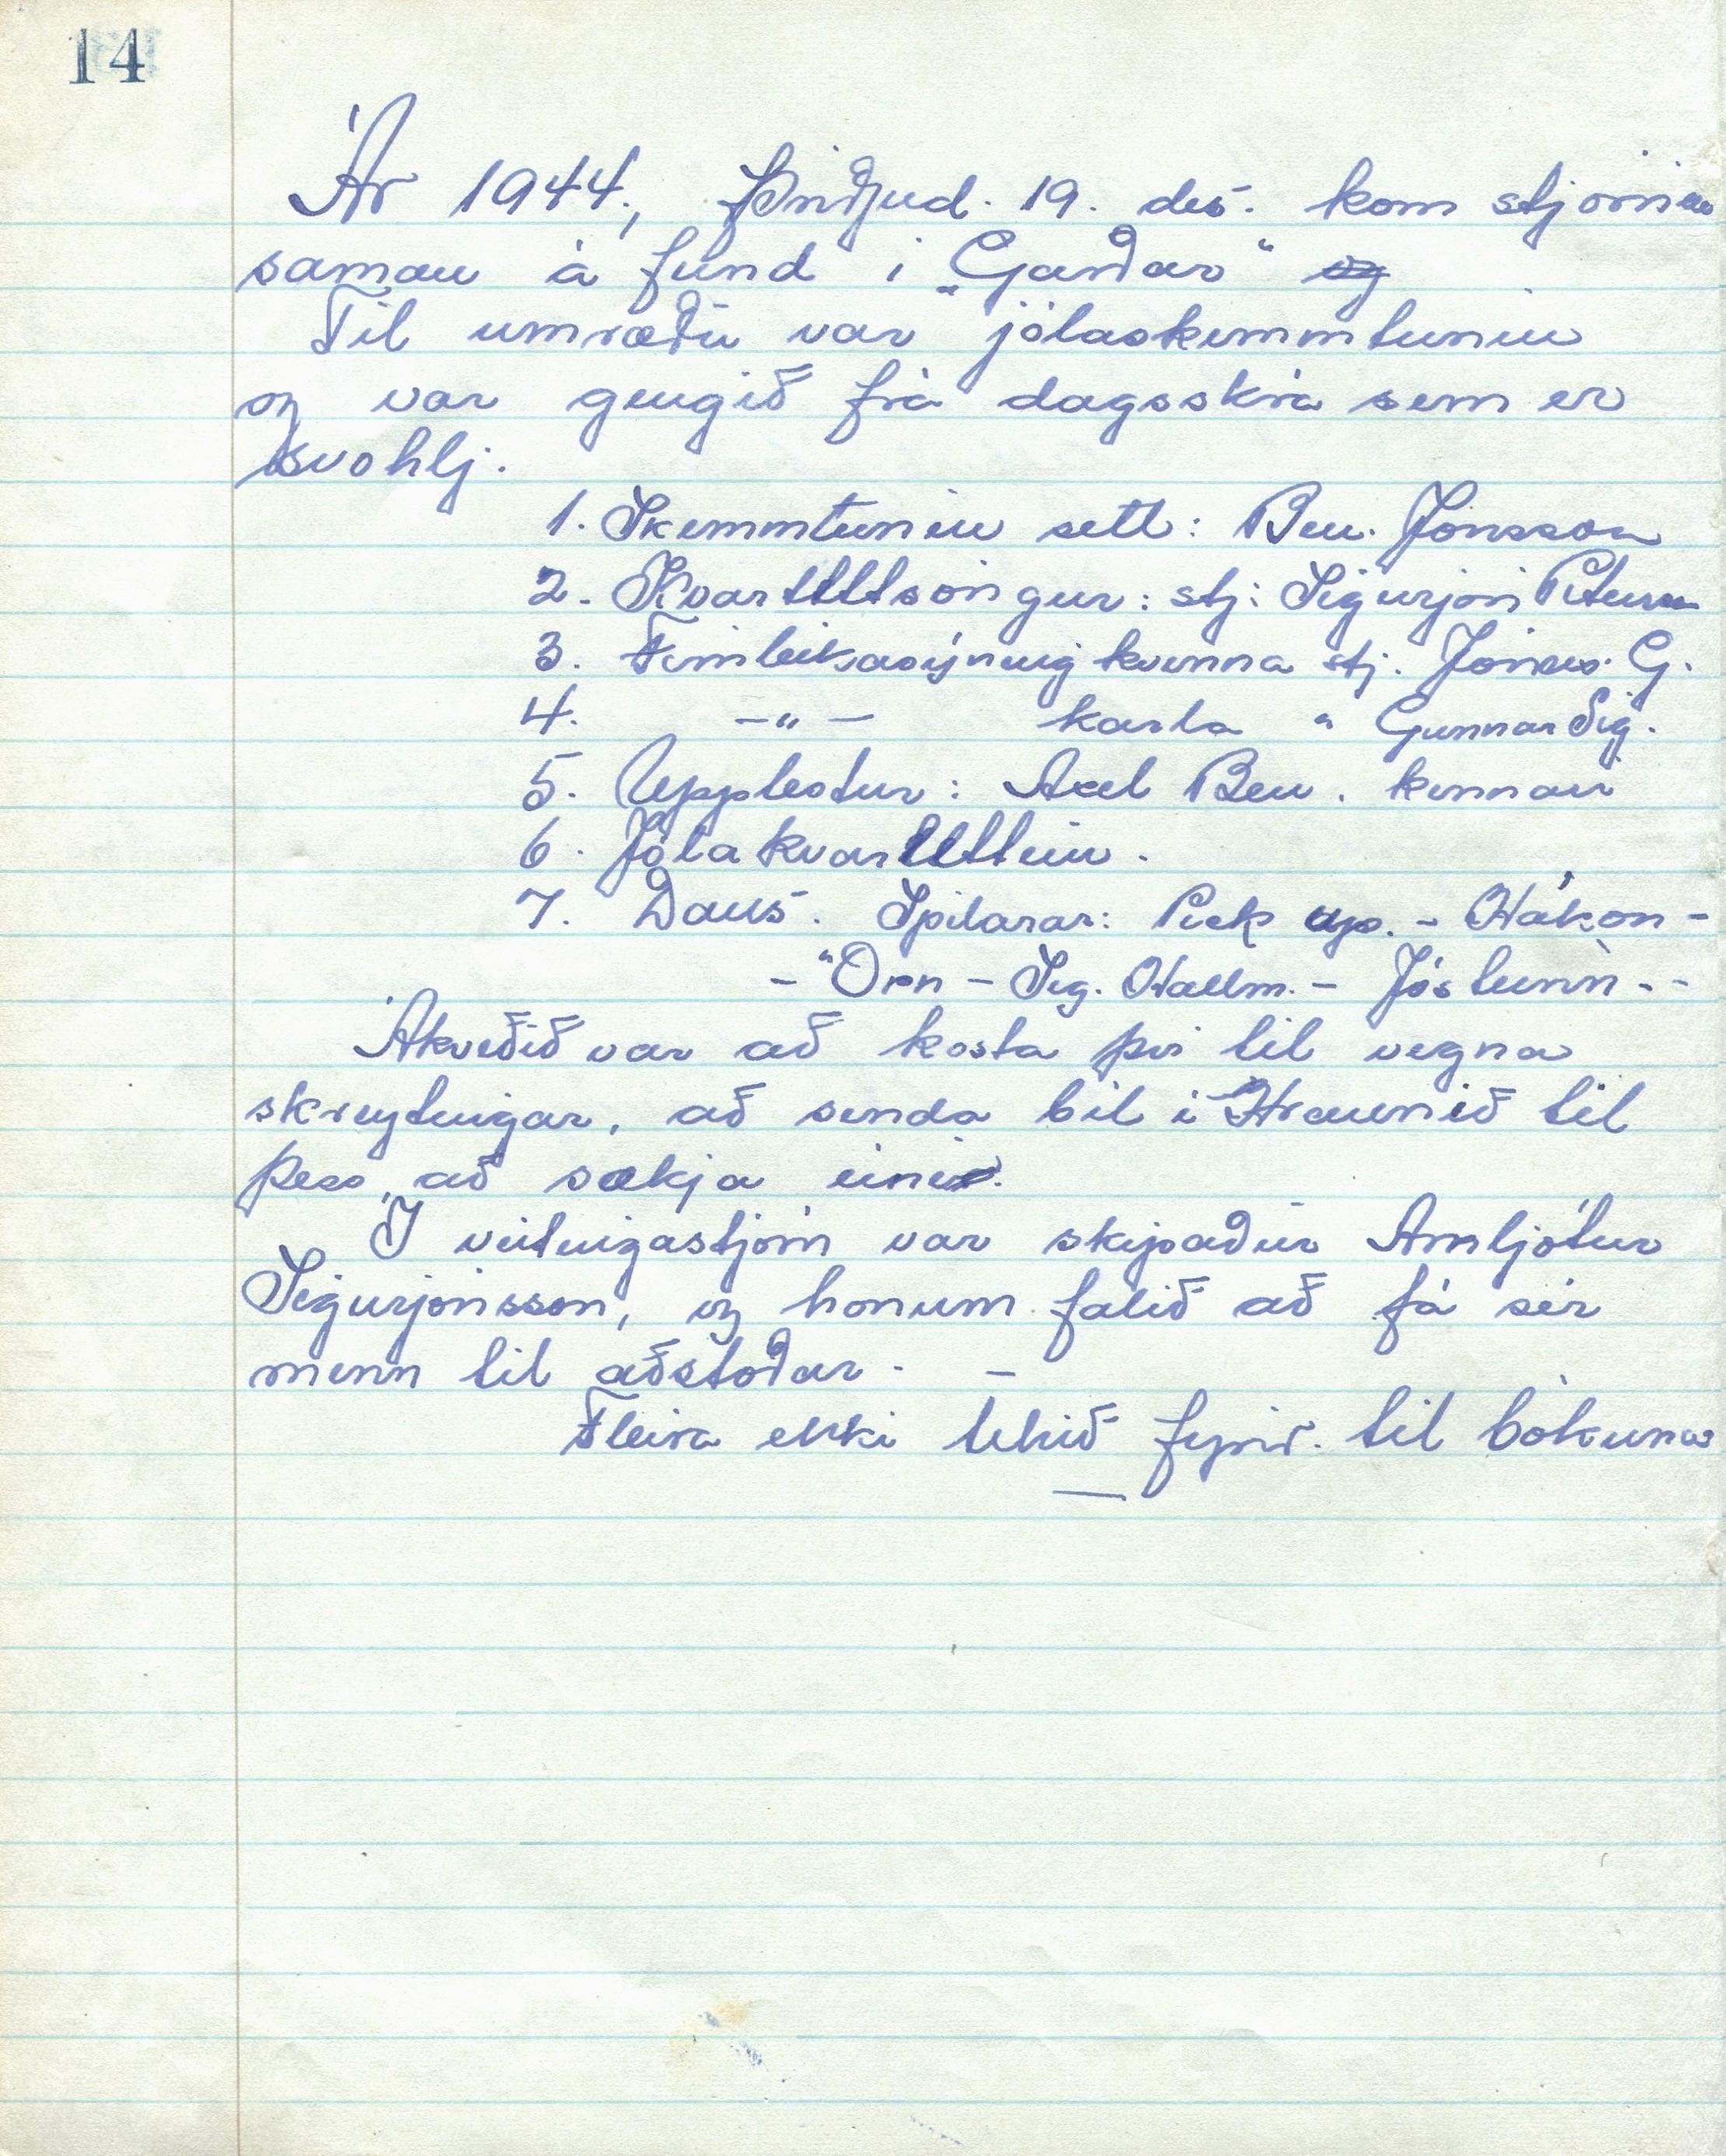 14
Ár 1944., Þriðjud. 19. des. kom stjórnin
saman á fund í „Garðar“ og
Til umræðu var jólaskemmtunin
og var gengið frá dagsskrá sem er
svohlj.
1. Skemmtunin sett: Ben. Jónsson
2. Kvartettsöngur: stj: Sigurjón Péturss
3. Fimleikasýning kvenna stj. Jónas G.
4. —„— karla " Gunnar Sig.
5. Upplestur: Axel Ben. kennari
6. Jólakvartettinn.
7. Dans. Spilarar: Pick up. - Hákon -
- Örn - Sig. Hallm. - Jósteinn. -
Ákveðið var að kosta því til vegna
skreytingar, að senda bíl í Hraunið til
þess, að sækja eini.
Í veitingastjórn var skipaður Arnljótur
Sigurjónsson, og honum falið að fá sér
menn til aðstoðar. —
Fleira ekki tekið fyrir. til bókunar